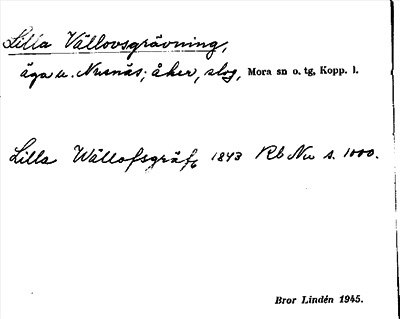 Lilla Vällovsgrävning,
äga u. Nusnäs; åker, slog, Mora sn o. tg, Kopp. l.
Lilla Wällofsgräf, 1843 Rb Nu s. 1000.
Bror Lindén 1945.